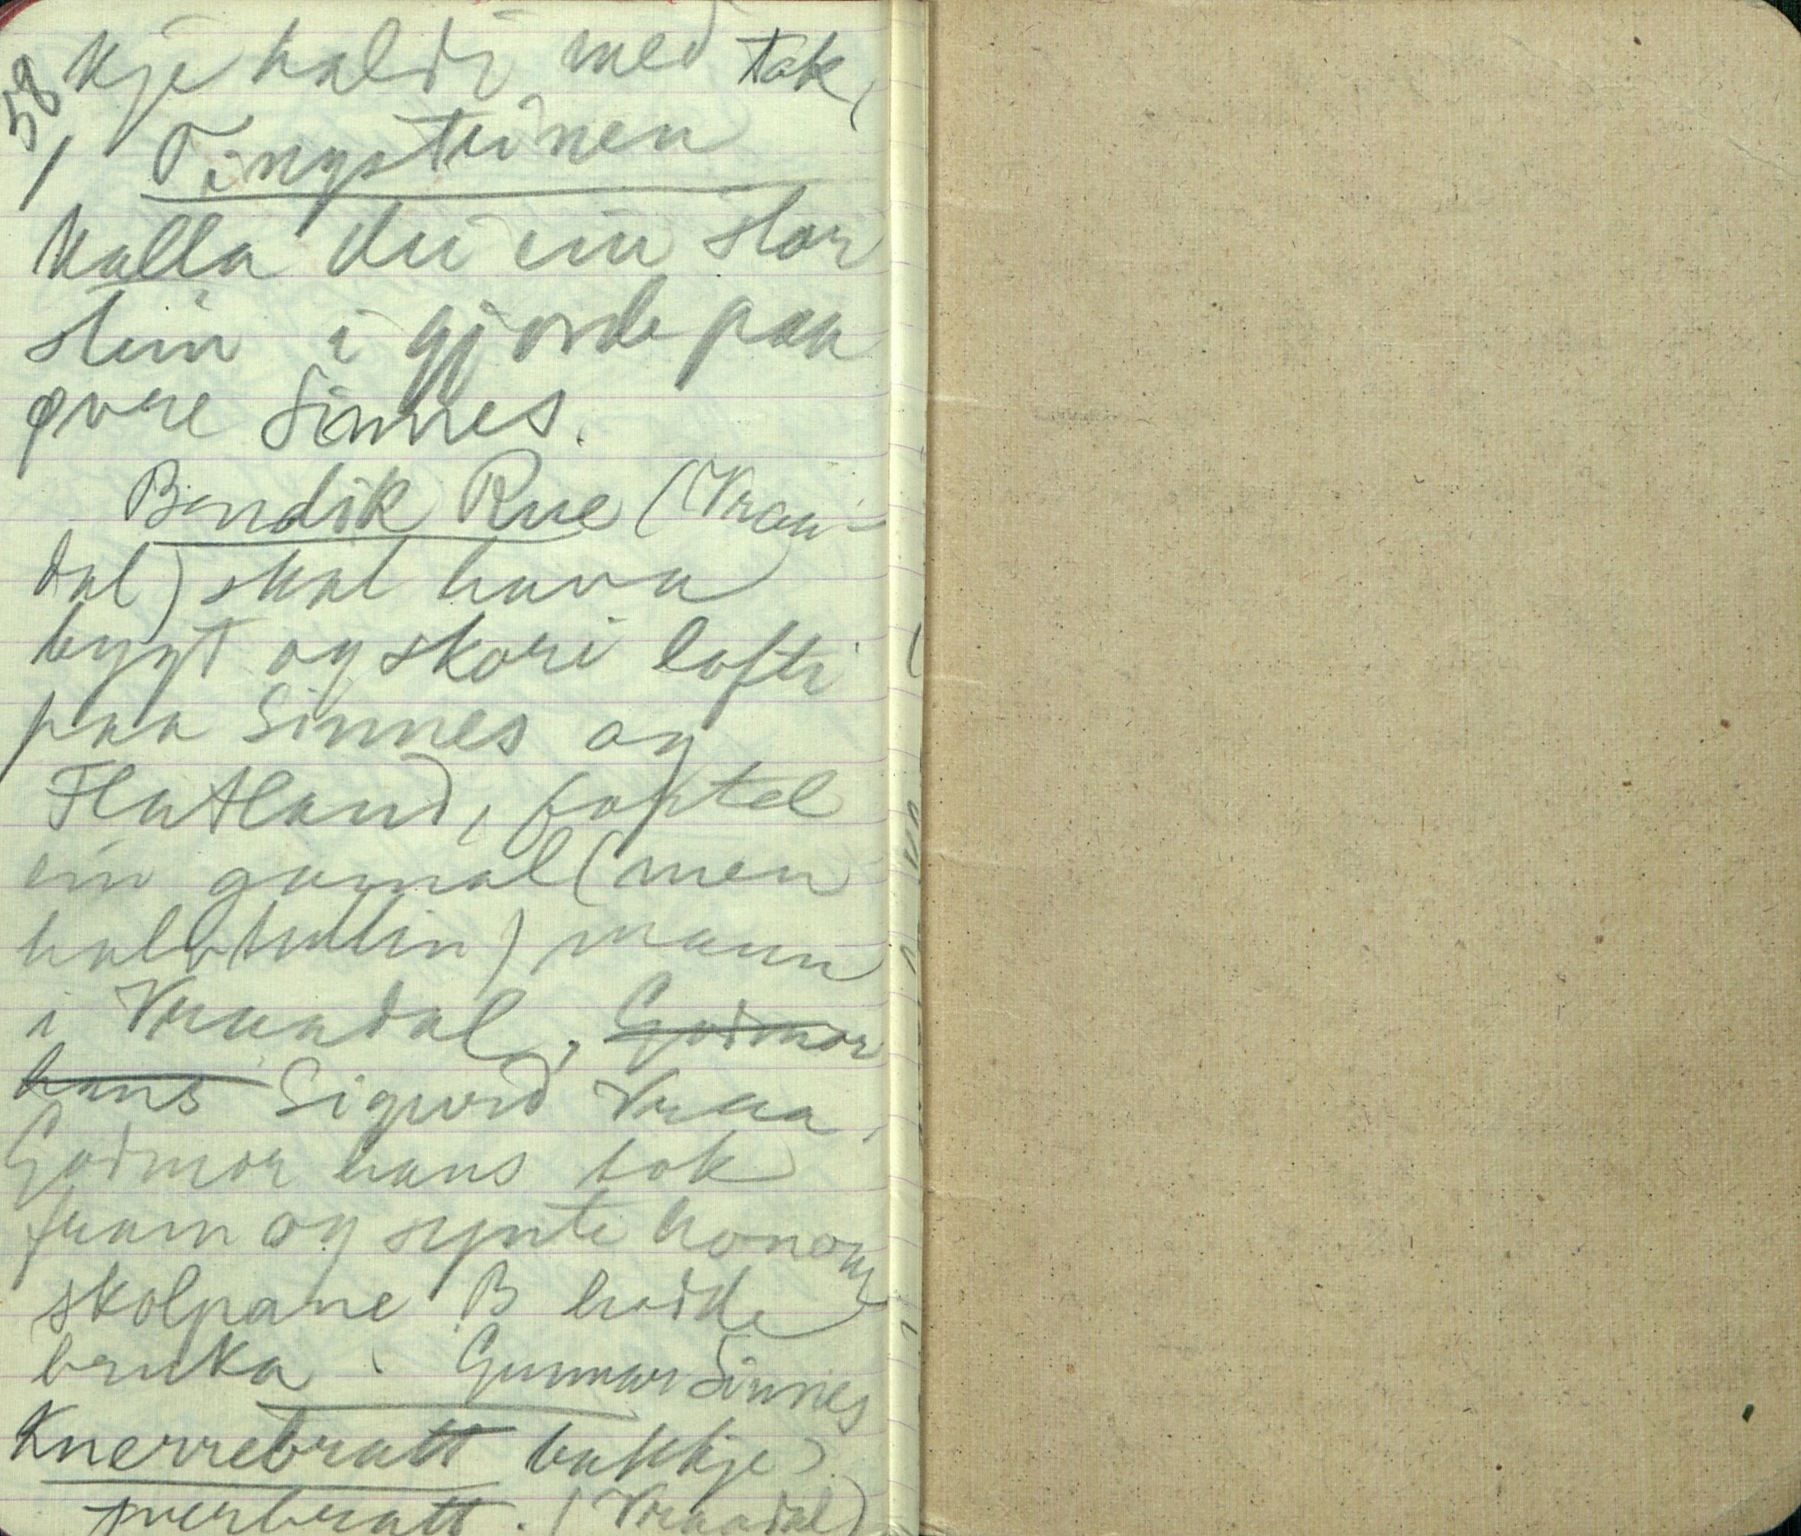 58
kje haldi med tak,
/ Tingsteinen
kalla dei ein stor
stein i gjorde paa
øvre Sinnes.
Bendik Rue (Vraa-
dal) skal hava
bygt og skori lofti
paa Sinnes og
Flatland, fortel
ein gamal (men
halvtullin) mann
i Vraadal, Godmor
hans Sigurd Vraa,
Godmor hans tok
fram og synte honom
skolpane B hadde
bruka. Gunnar Sinnes
Knerrebratt bakkje
sverbratt. (Vraadal)